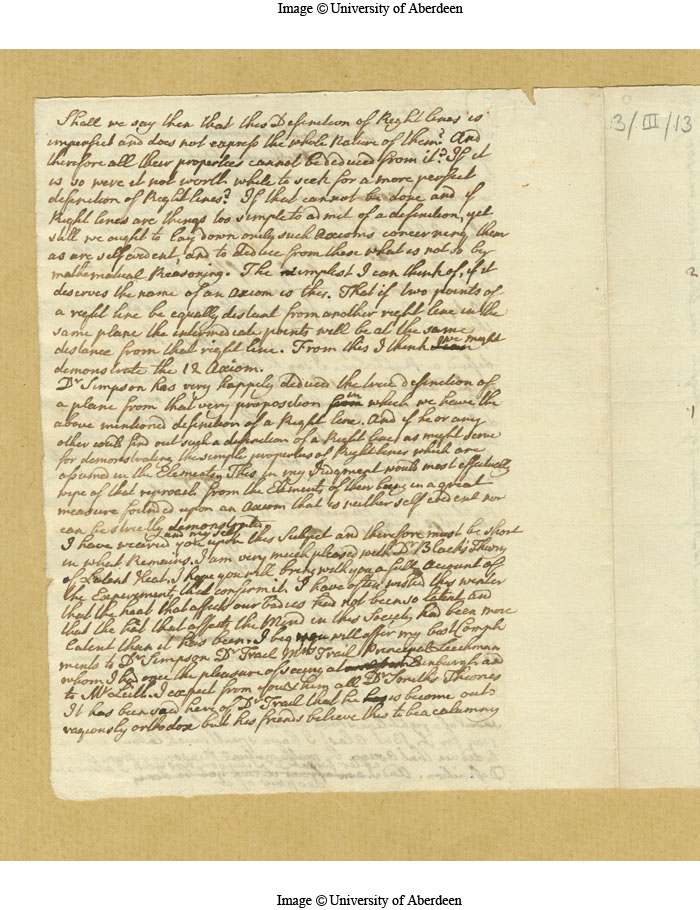 Image © University of Aberdeen
3/III/13
Shall we say then that this Definition of Right lines is
imperfect and does not express the whole Nature of them? And
therefore all their properties cannot be deduced from it? If it
is so were it not worth while to seek for a more perfect
definition of Right lines? If that cannot be done and if
Right lines are things too simple to admit of a definition, yet
still we ought to lay down only such Axioms concerning them
as are self evident, and to deduce from these what is not so by
mathematical Reasoning. The simplest I can think of, if it
deserves the name of an axiom is this. That if two points of
a right line be equally distant from another right line in the
same plane the intermediate points will be at the same
distance from that right line. From this I think we might
demonstrate the 12 Axiom.
Dr Simpson has very happily deduced the true definition of
a plane from that very proposition from which we have the
above mentioned definition of a Right line. And if he or any
other could find out such a definition of a Right line as might serve
for demonstrating the simple properties of Right lines which are
assumed in the Elements, This in my Judgment would most effectually
wipe of that reproach from the Elements of their being in a great
measure founded upon an Axiom that is neither self evident nor
can be strictly demonstrated.
I have wearied you and my self upon this Subject and therefore must be short
in what Remains. I am very much pleased with Dr Blacks Theory
of Latent Heat. I hope you will bring with you a full account of
the Experiments that confirm it. I have often wished this winter
that the heat that affects our bodies had not been so latent, and
that the heat that affects the Mind in this Society had been more
latent than it has been. I beg you will offer my best Compli
ments to Dr Simpson Dr Trail Mrs Trail Principal Leechman
whom I had once the pleasure of seeing at Edinburgh and
to Mr I expect from you & them all Dr Smiths Theories
It has been said here of Dr Trail that he is become out
ragiously orthodox but his friends believe this to be a calumny
2
1
Image © University of Aberdeen